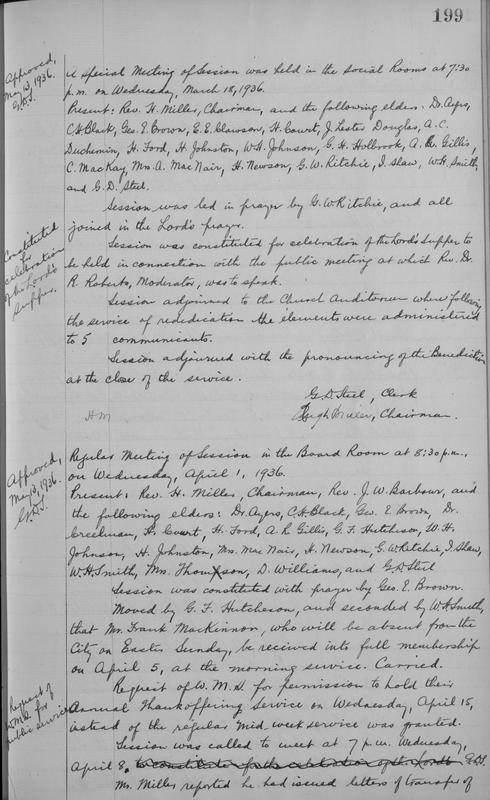 199
Approved,
May 13, 1936.
G.D.S.
A special Meeting of Session was held in the Social Rooms at 7:30
p.m. on Wednesday, March 18, 1936.
Present: Rev. H. Miller, Chairman, and the following elders: Dr. Ayers,
C.H. Black, Geo. E. Brown, E.E. Clawson, H. Court, J. Lester Douglas, A.C.
Duchemin, H. Ford, H. Johnston, W.H. Johnson, G.H. Holbrook, A.R. Gillis,
C. MacKay, Mrs. A. MacNair, H. Newson, G.W. Ritchie, I. Shaw, W.H. Smith,
and G.D. Steel.
Session was led in prayer by G.W. Ritchie, and all
joined in the Lord's prayer.
Constituted
for
celebration
of the Lord's
Supper.
Session was constituted for celebration of the Lord's Supper to
be held in connection with the public meeting at which Rev. Dr.
R. Roberts, Moderator, was to speak.
Session adjourned to the Church Auditorium where following
the service of rededication the elements were administered
to 5 communicants.
Session adjourned with the pronouncing of the Benediction
at the close of the service.
G.D. Steel, Clerk
HM
Hugh Miller, Chairman.
Approved,
May 13, 1936.
G.D.S.
Regular Meeting of Session in the Board Room at 8:30 p.m.,
on Wednesday, April 1, 1936.
Present: Rev. H. Miller, Chairman, Rev. J.W. Barbour, and
the following elders: Dr. Ayers, C.H. Black, Geo. E. Brown, Dr.
Creelman, H. Court, H. Ford, A.R. Gillis, G.F. Hutcheson, W.H.
Johnson, H. Johnston, Mrs. MacNair, H. Newson, G.W. Ritchie, I. Shaw,
W.H. Smith, Mrs. Thomson, D. Williams, and G.D. Steel
Session was constituted with prayer by Geo. E. Brown.
Moved by G.F. Hutcheson, and seconded by W.H. Smith,
that Mr. Frank MacKinnon, who will be absent from the
City on Easter Sunday, be received into full membership
on April 5, at the morning service. Carried.
Request of
W.M.S. for
public service
Request of W.M.S. for permission to hold their
Annual Thankoffering Service on Wednesday, April 15,
instead of the regular mid week service was granted.
Session was called to meet at 7 p.m. Wednesday,
April 8, to constitute for the celebration of the Lord's G.D.S.
Mr. Miller reported he had issued letters of transfer of